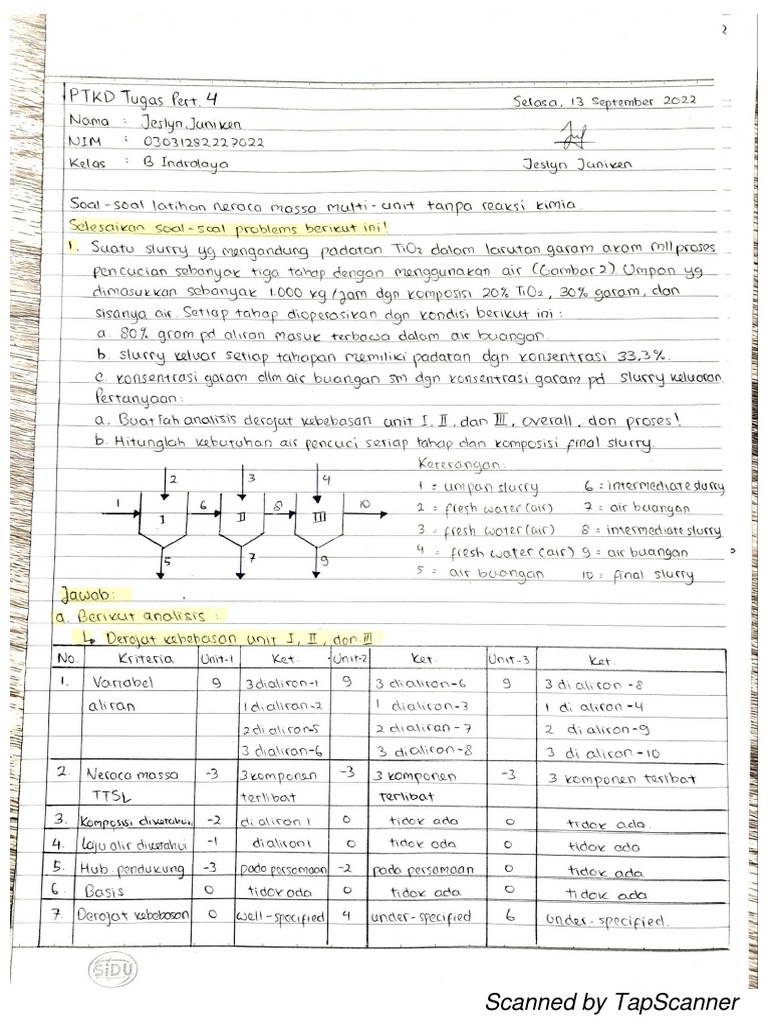 2
PTKD Tugas Pert. 4
Selasa, 13 September 2022
Nama : Jeslyn Juniken
NIM : 03031282227022
Kelas : B Indralaya
Jeslyn Juniken
Soal-soal latihan neraca massa multi-unit tanpa reaksi kimia.
Selesaikan soal-soal problems berikut ini!
1. Suatu slurry yg mengandung padatan TiO2 dalam larutan garam akam mll proses
pencucian sebanyak tiga tahap dengan menggunakan air (Gambar 2). Umpan yg
dimasukkan sebanyak 1.000 kg/jam dgn komposisi 20% TiO2, 30% garam, dan
sisanya air. Setiap tahap dioperasikan dgn kondisi berikut ini :
a. 80% gram pd aliran masuk terbawa dalam air buangan.
b. slurry keluar setiap tahapan memiliki padatan dgn konsentrasi 33,3%.
c. konsentrasi garam dlm air buangan sm dgn konsentrasi garam pd slurry keluaran.
Pertanyaan:
a. Buatlah analisis derajat kebebasan unit I, II, dan III, overall, dan proses!
b. Hitunglah kebutuhan air pencuci setiap tahap dan komposisi final slurry.
Keterangan:
1 = umpan slurry 6 = intermediate slurry
2 = fresh water (air) 7 = air buangan
3 = fresh water (air) 8 = intermediate slurry
4 = fresh water (air) 9 = air buangan
5 = air buangan 10 = final slurry
2 3 4
1 I 6 II 8 III 10
5 7 9
Jawab:
a. Berikut analisis :
↳ Derajat kebebasan unit I, II, dan III
No. Kriteria Unit-1 Ket. Unit-2 Ket. Unit-3 Ket.
1. Variabel 9 3 dialiran-1 9 3 dialiran-6 9 3 di aliran -8
aliran 1 dialiran-2 1 dialiran-3 1 di aliran -4
2 dialiran-5 2 dialiran-7 2 di aliran-9
3 dialiran-6 3 dialiran-8 3 di aliran-10
2. Neraca massa -3 3 komponen -3 3 komponen -3 3 komponen terlibat
TTSL terlibat terlibat
3. Komposisi diketahui -2 di aliran 1 0 tidak ada 0 tidak ada.
4. Laju alir diketahui -1 dialiran 1 0 tidak ada 0 tidak ada
5. Hub pendukung -3 pada persamaan -2 pada persamaan 0 tidak ada
6. Basis 0 tidak ada 0 tidak ada 0 tidak ada
7. Derajat kebebasan 0 well-specified 4 under-specified 6 under-specified.
SiDU
Scanned by TapScanner